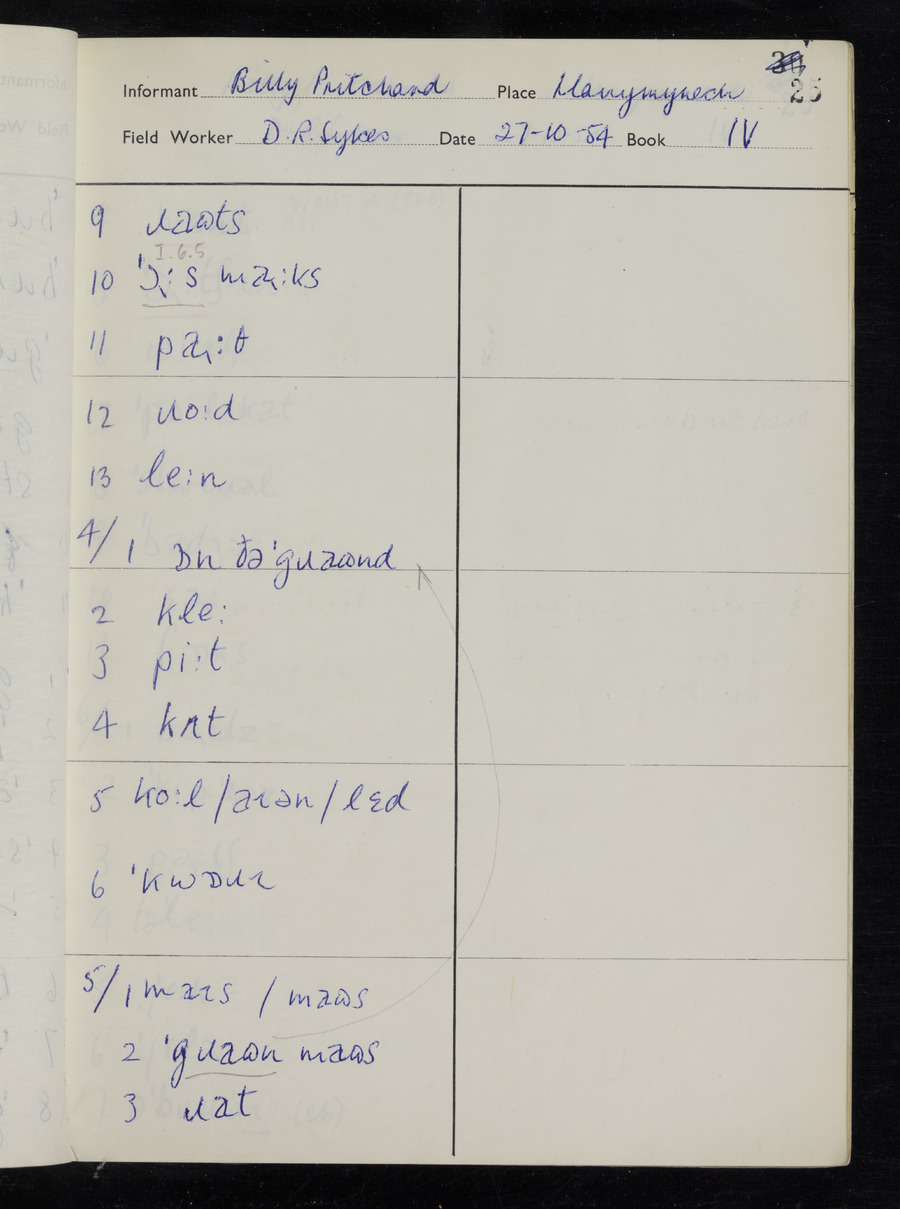 25
Informant Billy Pritchard Place Llanymynech
Field Worker D.R. Sykes Date 27-10-54 Book IV
9 ɹaʊts
I.6.5
10 'ɔ˞:s ma˞:ks
11 pa˞:t
12 ɹo:d
13 le:n
4/1 ɒn ðə'gɹaʊnd
2 kle:
3 pi:t
4 kʌt
5 ko:l / aɪən / lɛd
6 'kwɒɹɪ
5/1 maɪs / maʊs
2 'gɹaʊn maʊs
3 ɹat